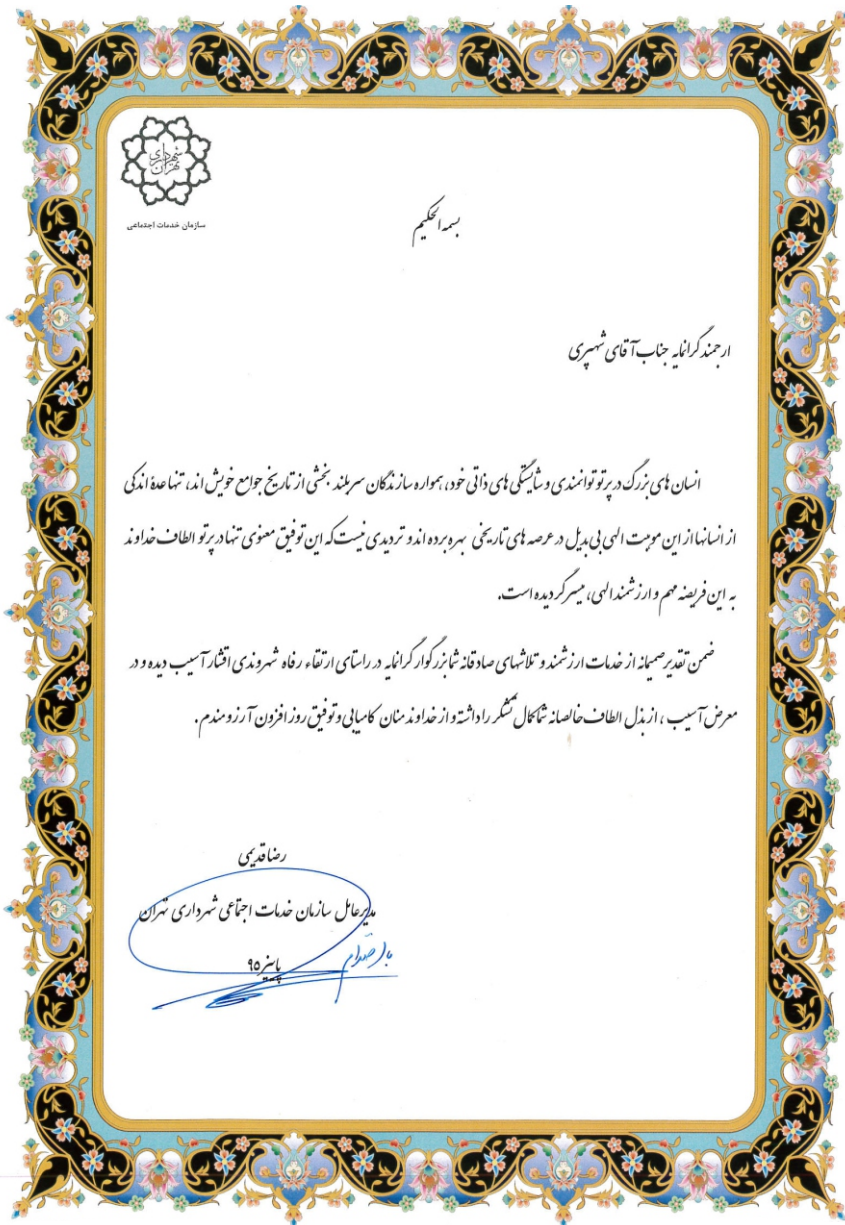 شهرداری
تهران
سازمان خدمات اجتماعی
بسمه الحکیم
ارجمند گرانمایه جناب آقای شهپری
انسان های بزرگ در پرتو توانمندی و شایستگی های ذاتی خود، همواره سازندگان سربلند بخشی از تاریخ جوامع خویش اند، تنها عدهٔ اندکی
از انسانها از این موهبت الهی بی بدیل در عرصه های تاریخی بهره برده اند و تردیدی نیست که این توفیق معنوی تنها در پرتو الطاف خداوند
به این فریضه مهم و ارزشمند الهی، میسر گردیده است.
ضمن تقدیر صمیمانه از خدمات ارزشمند و تلاشهای صادقانه شما بزرگوار گرانمایه در راستای ارتقاء رفاه شهروندی اقشار آسیب دیده و در
معرض آسیب ، از بذل الطاف خالصانه شما کمال تشکر را داشته و از خداوند منان کامیابی و توفیق روز افزون آرزومندم.
رضا قدیمی
مدیرعامل سازمان خدمات اجتماعی شهرداری تهران
با احترام
پاییز ۹۵